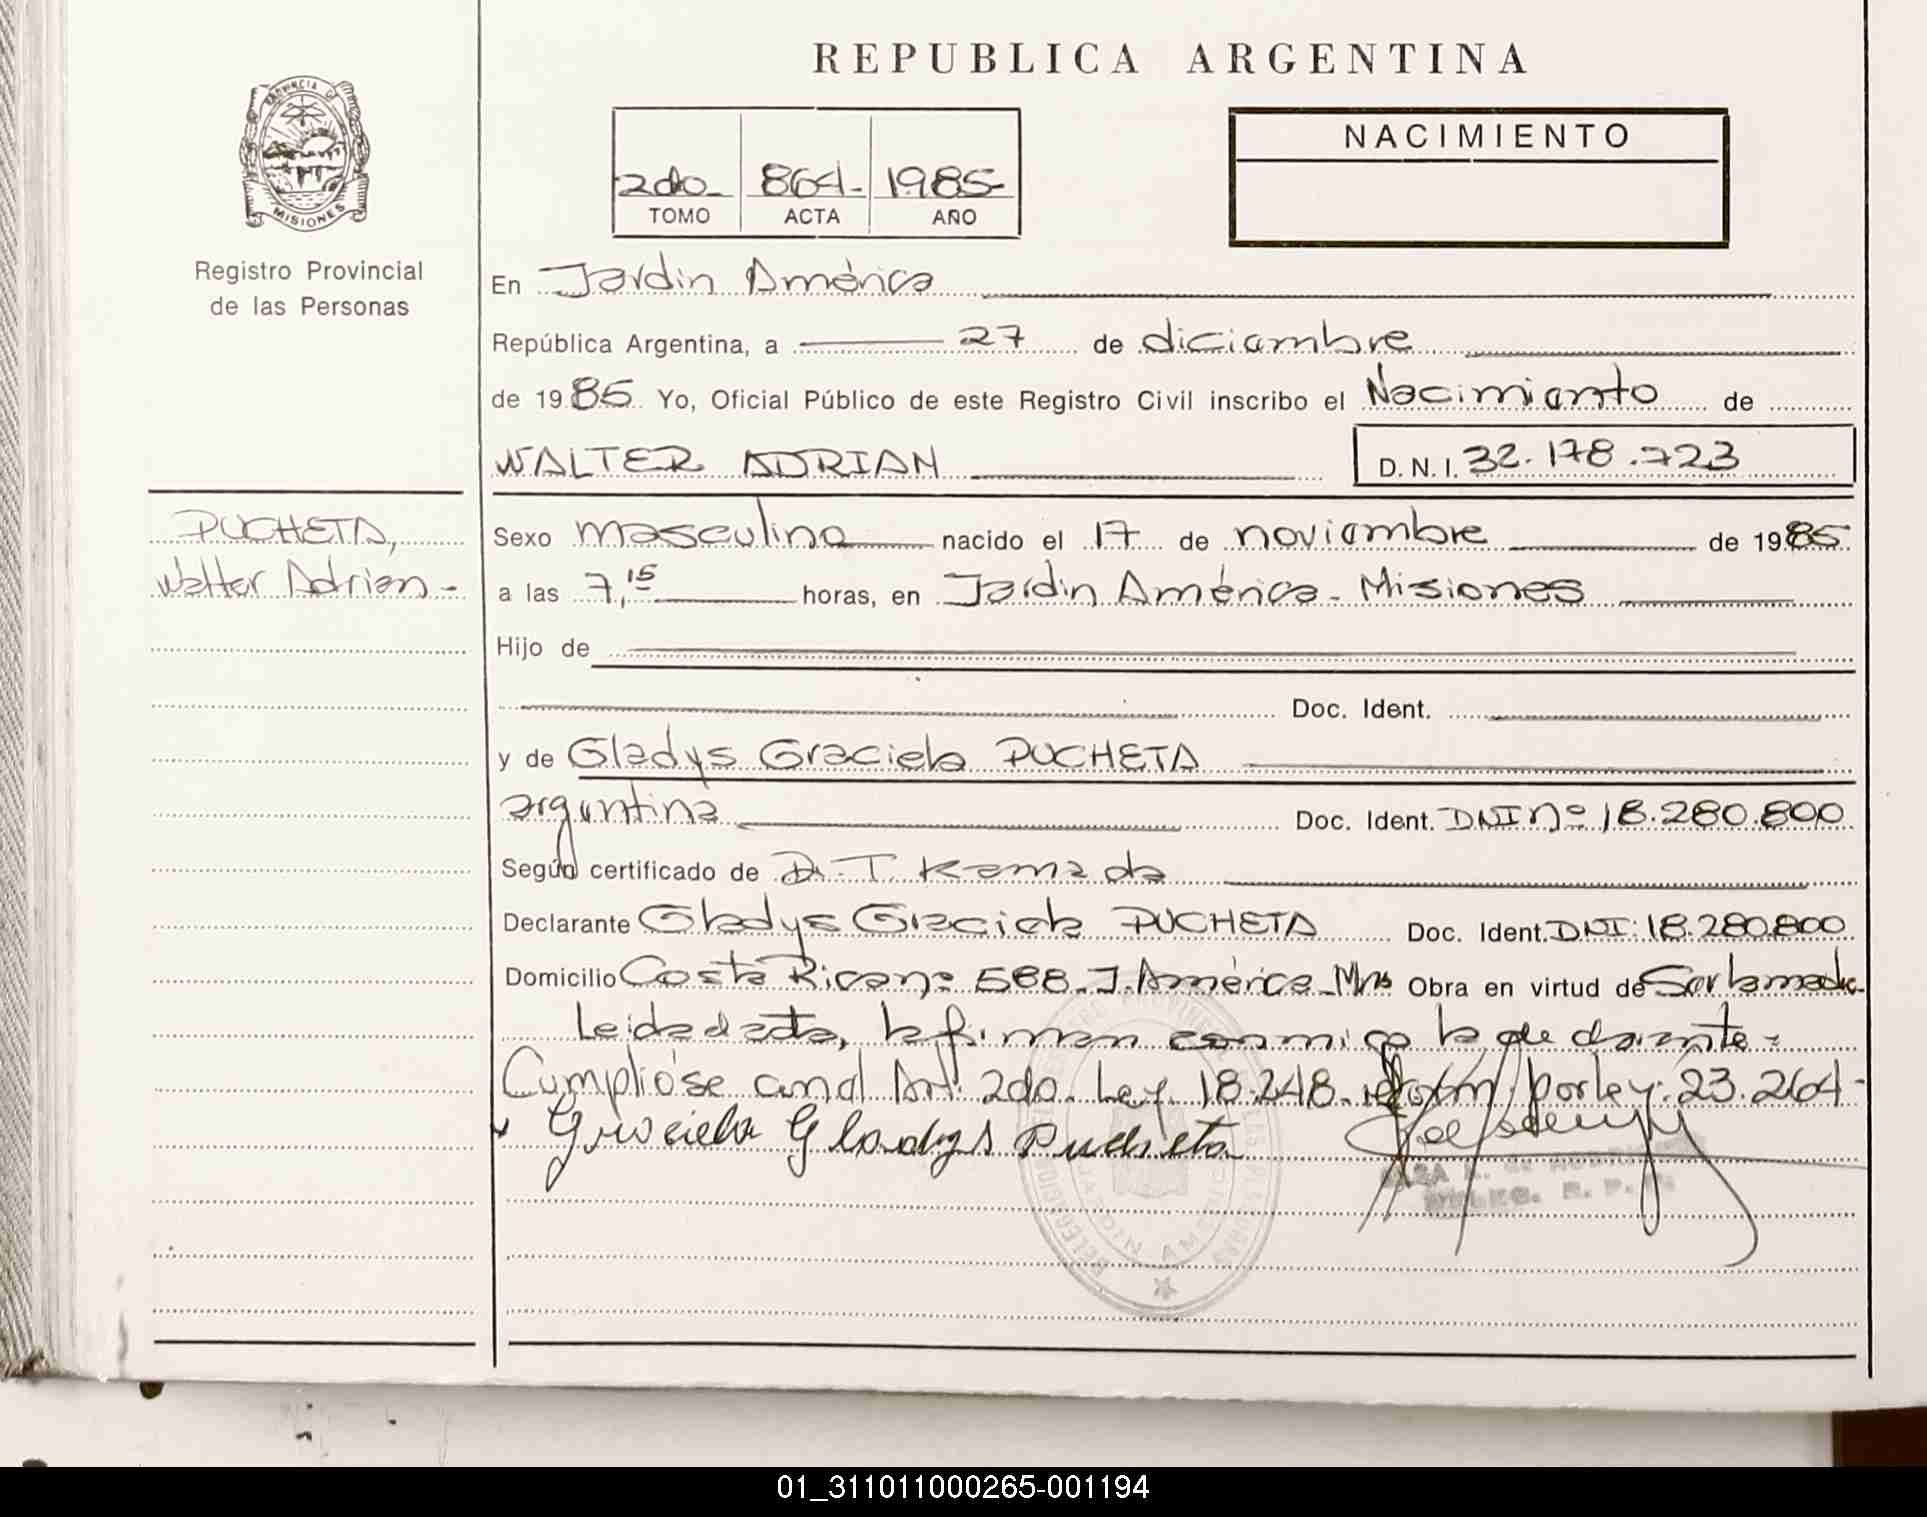 REPUBLICA ARGENTINA
PROVINCIA DE
MISIONES
Registro Provincial
de las Personas
2do- 864- 1985-
TOMO ACTA AÑO
NACIMIENTO
En Jardin América
República Argentina, a 27 de diciembre
de 1985 Yo, Oficial Público de este Registro Civil inscribo el Nacimiento de
WALTER ADRIAN D. N. I. 32.178.723
PUCHETA,
Walter Adrian-
Sexo masculino nacido el 17 de noviembre de 1985
a las 7,15 horas, en Jardin América- Misiones
Hijo de
Doc. Ident.
y de Gladys Graciela PUCHETA
argentina Doc. Ident. DNI nº 18.280.800
Según certificado de Dr. T. Kamada
Declarante Gladys Graciela PUCHETA Doc. Ident. DNI: 18.280.800
Domicilio Costa Rica nº 588- J. América- Mns Obra en virtud de Ser la madre-
Leida el acta, la firman conmigo la declarante-
Cumplióse con el Art. 2do. Ley 18.248- reform. por ley. 23.264-
Graciela Gladys Pucheta
01_311011000265-001194